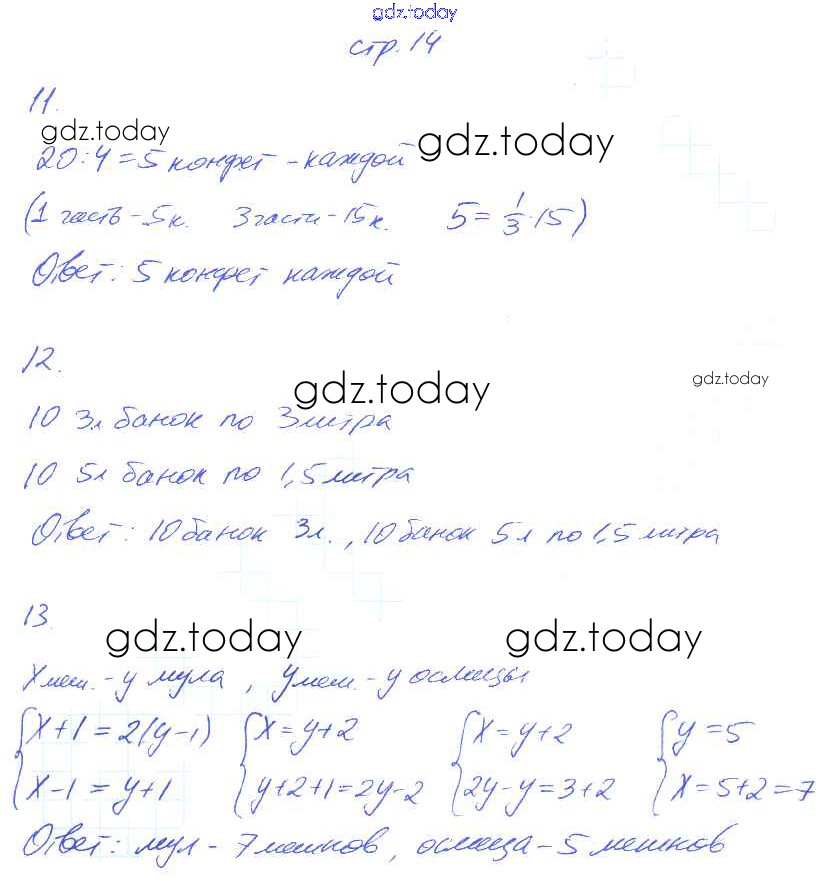 gdz.today
стр. 14
11.
gdz.today
20:4=5 конфет - каждой
gdz.today
(1 часть - 5 к. 3 части - 15 к. 5 = 1/3 · 15)
Ответ: 5 конфет каждой
12.
gdz.today
gdz.today
10 3л банок по 3 литра
10 5л банок по 1,5 литра
Ответ: 10 банок 3л., 10 банок 5л по 1,5 литра
13.
gdz.today
gdz.today
X меш. - у мула, У меш. - у ослицы
{x+1=2(y-1) {x=y+2 {x=y+2 {y=5
{x-1=y+1 {y+2+1=2y-2 {2y-y=3+2 {x=5+2=7
Ответ: мул - 7 мешков, ослица - 5 мешков